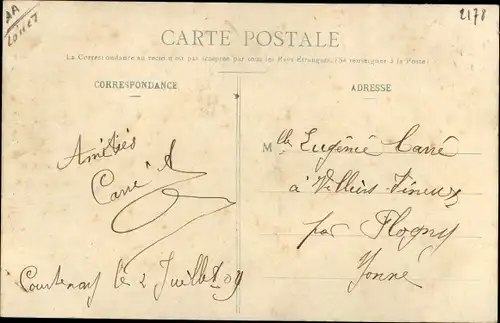 AA
LOIRET
2178
CARTE POSTALE
La Correspondance au recto n'est pas acceptée par tous les Pays étrangers. (Se renseigner à la Poste)
CORRESPONDANCE
ADRESSE
Amitiés
Carré
Courtenay le 2 Juillet 09
Mlle Eugénie Carré
à Villiers-Vineux
par Flogny
Yonne